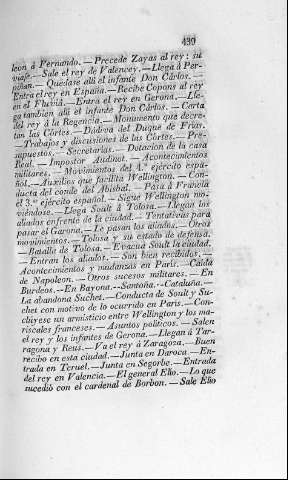 439
leon á Fernando.—Precede Zayas al rey: su
viaje.—Sale el rey de Valencey.—Llega á Per-
piñan.—Quédase allí el infante Don Cárlos.—
Entra el rey en España.—Recibe Copons al rey
en el Fluviá.—Entra el rey en Gerona.—Lle-
ga tambien allí el infante Don Cárlos.—Carta
del rey á la Regencia.—Monumento que decre-
tan las Córtes.—Dádiva del Duque de Frias.
—Trabajos y discusiones de las Córtes.—Pre-
supuestos.—Secretarías.—Dotacion de la casa
Real.—Impostor Audinot.—Acontecimientos
militares.—Movimientos del 4.º ejército espa-
ñol.—Auxilios que facilita Wellington.—Con-
ducta del conde del Abisbal.—Pasa á Francia
el 3.er ejército español.—Sigue Wellington mo-
viéndose.—Llega Soult á Tolosa.—Llegan los
aliados enfrente de la ciudad.—Tentativas para
pasar el Garona.—Le pasan los aliados.—Otros
movimientos.—Tolosa y su estado de defensa.
—Batalla de Tolosa.—Evacua Soult la ciudad.
—Entran los aliados.—Son bien recibidos.—
Acontecimientos y mudanzas en Paris.—Caida
de Napoleon.—Otros sucesos militares.—En
Burdeos.—En Bayona.—Santoña.—Cataluña.—
La abandona Suchet.—Conducta de Soult y Su-
chet con motivo de lo ocurrido en Paris.—Con-
clúyese un armisticio entre Wellington y los ma-
riscales franceses.—Asuntos políticos.—Salen
el rey y los infantes de Gerona.—Llegan á Tar-
ragona y Reus.—Va el rey á Zaragoza.—Buen
recibo en esta ciudad.—Junta en Daroca.—En-
trada en Teruel.—Junta en Segorbe.—Entrada
del rey en Valencia.—El general Elío.—Lo que
sucedió con el cardenal de Borbon.—Sale Elío